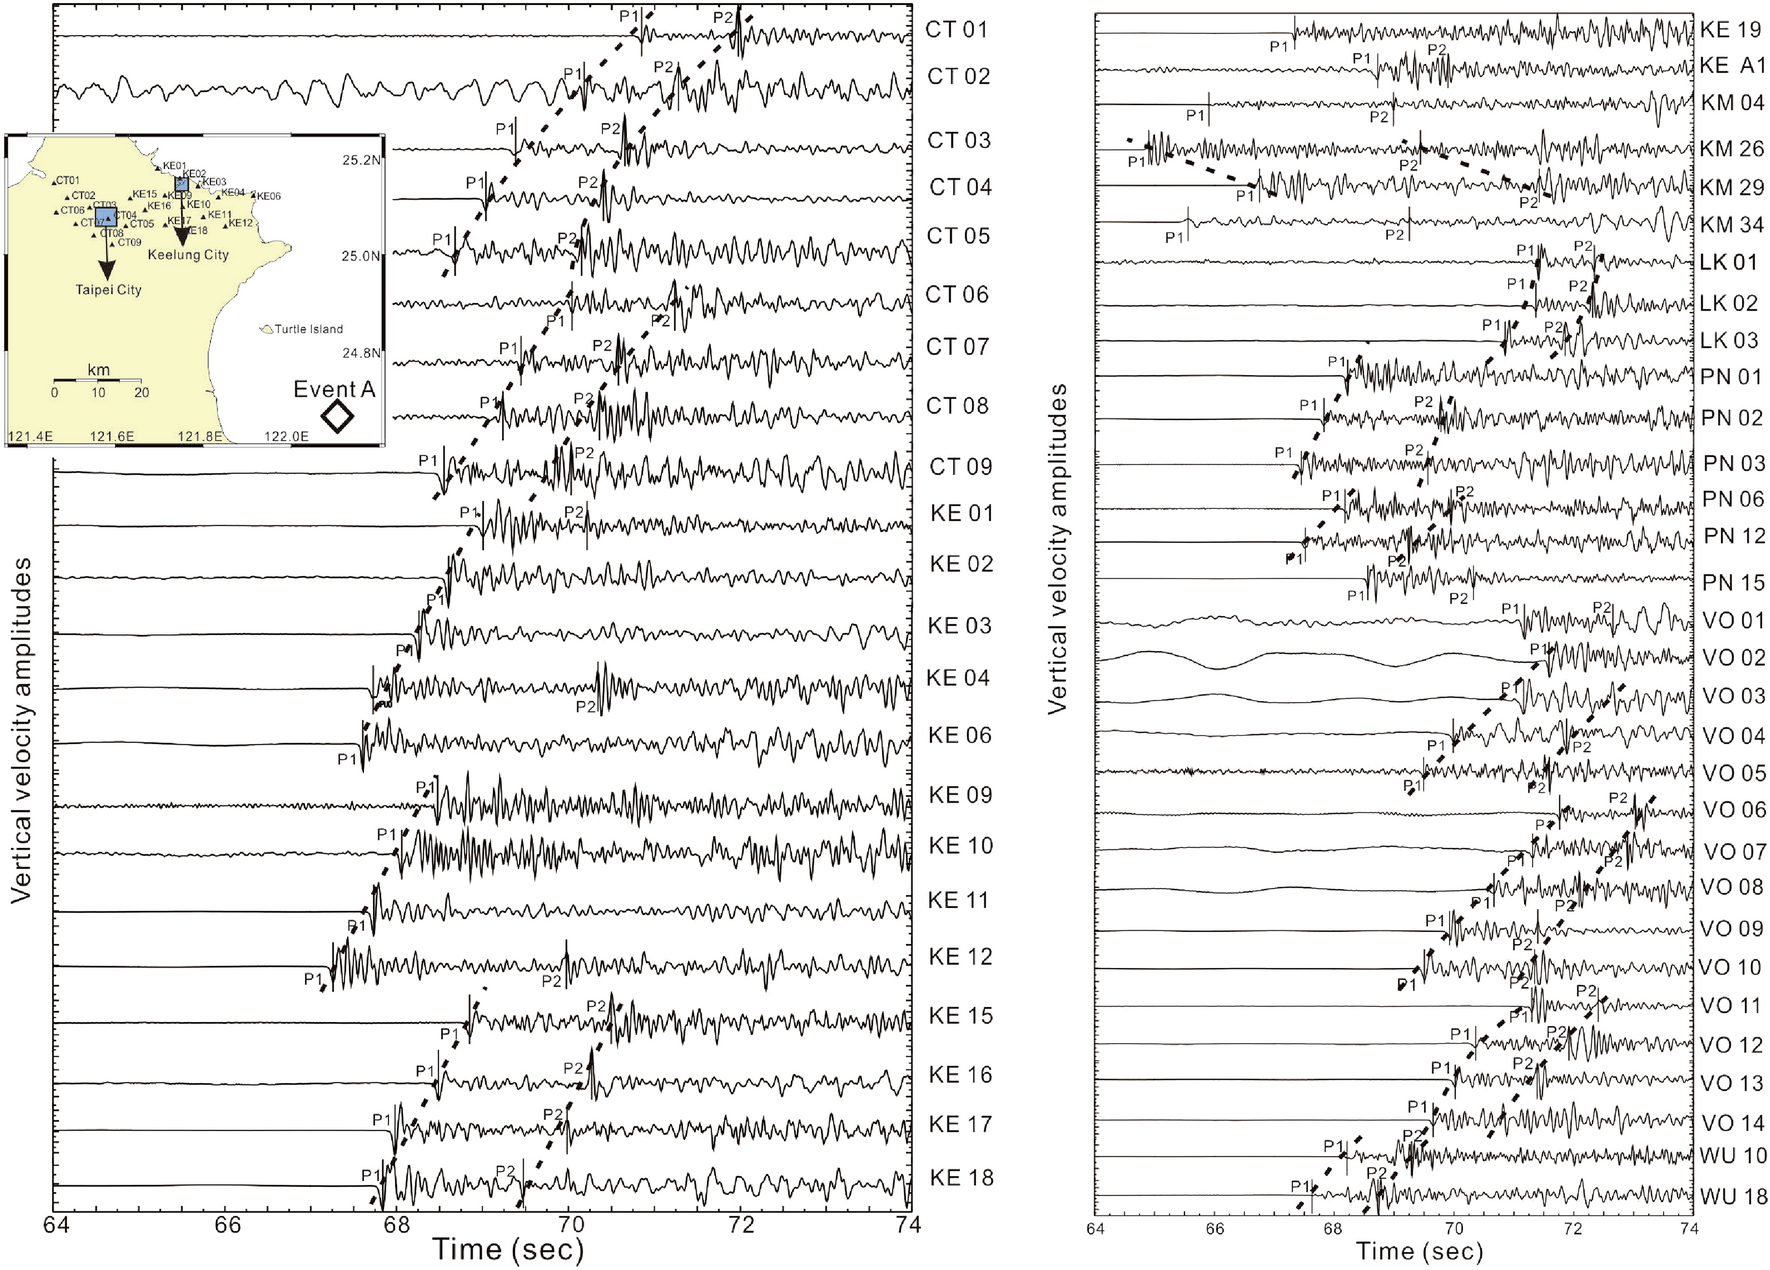 P1 P2 CT 01
P1 P2 CT 02
P1 P2 CT 03
P1 P2 CT 04
P1 P2 CT 05
P1 P2 CT 06
P1 P2 CT 07
P1 P2 CT 08
P1 P2 CT 09
P1 P2 KE 01
P1 KE 02
P1 KE 03
P2 KE 04
P1 KE 06
P1 KE 09
P1 KE 10
P1 KE 11
P1 P2 KE 12
P1 P2 KE 15
P1 P2 KE 16
P1 P2 KE 17
P1 P2 KE 18
64 66 68 70 72 74
Time (sec)
Vertical velocity amplitudes
25.2N
25.0N
24.8N
121.4E 121.6E 121.8E 122.0E
KE01
KE02
CT01 KE03
CT02 KE15 KE09 KE04 KE06
CT06 CT03 KE16 KE10
CT04 KE11
CT07 CT05 KE17 KE12
CT08 KE18
CT09
Keelung City
Taipei City
Turtle Island
km
0 10 20
Event A
P1 KE 19
P1 P2 KE A1
P1 P2 KM 04
P1 P2 KM 26
P1 P2 KM 29
P1 P2 KM 34
P1 P2 LK 01
P1 P2 LK 02
P1 P2 LK 03
P1 PN 01
P1 P2 PN 02
P1 P2 PN 03
P1 P2 PN 06
P1 P2 PN 12
P1 P2 PN 15
P1 P2 VO 01
P1 VO 02
P1 VO 03
P1 P2 VO 04
P1 P2 VO 05
P1 P2 VO 06
P1 P2 VO 07
P1 P2 VO 08
P1 P2 VO 09
P1 P2 VO 10
P1 P2 VO 11
P1 P2 VO 12
P1 P2 VO 13
P1 VO 14
P1 P2 WU 10
P1 P2 WU 18
64 66 68 70 72 74
Time (sec)
Vertical velocity amplitudes